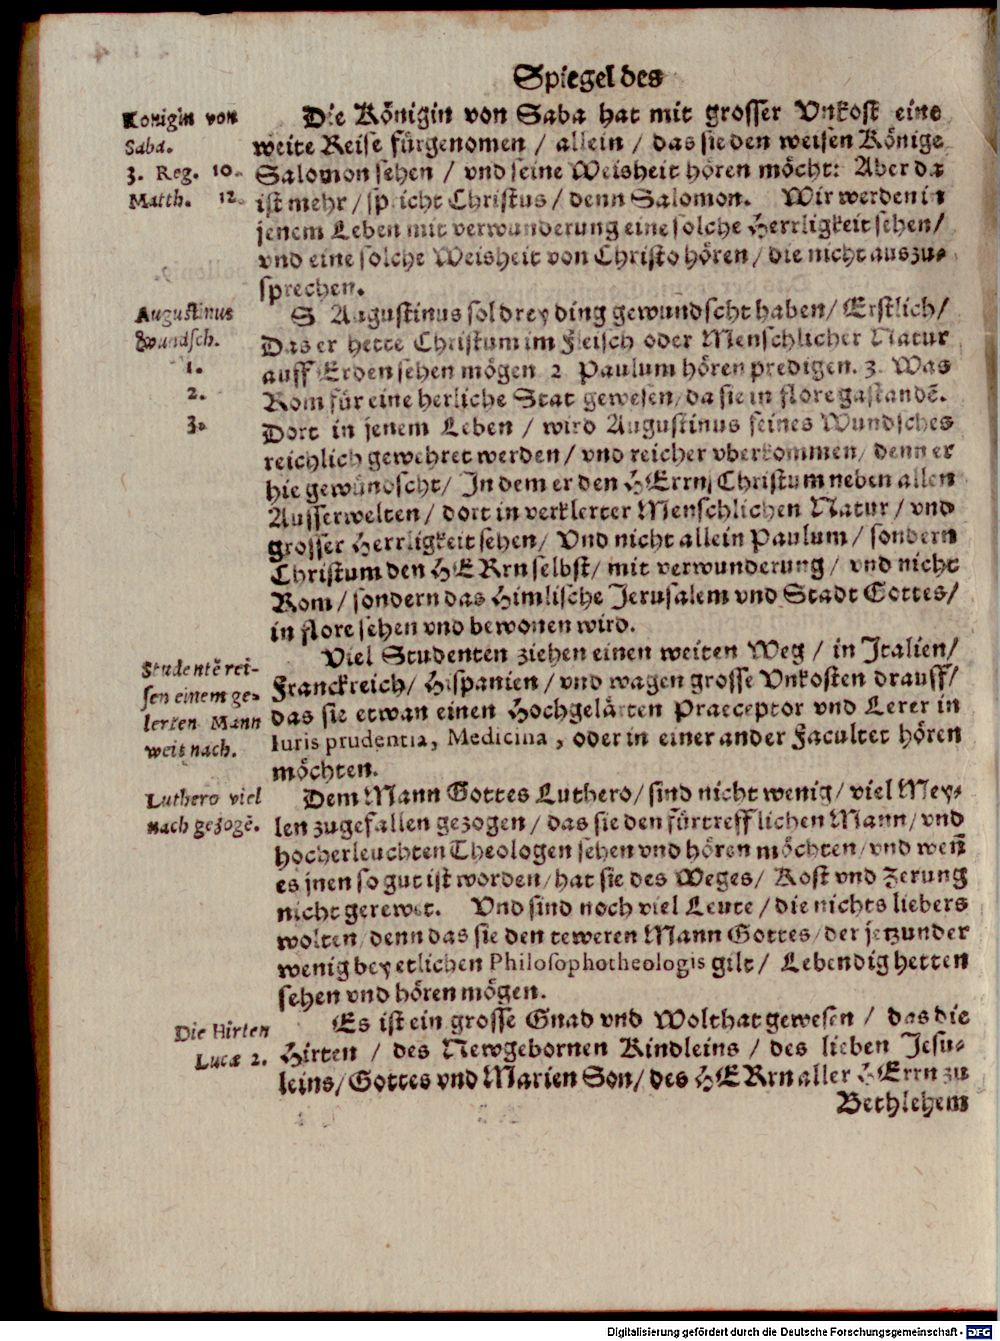 Spiegel des
Königin von
Saba.
3. Reg. 10.
Matth. 12.
Die Königin von Saba hat mit grosser Vnkost eine
weite Reise fürgenomen / allein / das sie den weisen Könige
Salomon sehen / vnd seine Weisheit hören möcht: Aber da
ist mehr / spricht Christus / denn Salomon. Wir werden in
jenem Leben mit verwunderung eine solche Herrligkeit sehen /
vnd eine solche Weisheit von Christo hören / die nicht auszu-
sprechen.
Augustinus
Wundsch.
1.
2.
3.
S. Augustinus sol drey ding gewundscht haben / Erstlich /
Das er hette Christum im Fleisch oder Menschlicher Natur
auff Erden sehen mögen 2 Paulum hören predigen. 3. Was
Rom für eine herliche Stat gewesen / da sie in flore gastandẽ.
Dort in jenem Leben / wird Augustinus seines Wundsches
reichlich gewehret werden / vnd reicher vberkommen / denn er
hie gewündscht / In dem er den HErrn Christum neben allen
Ausserwelten / dort in verklerter Menschlichen Natur / vnd
grosser Herrligkeit sehen / Vnd nicht allein Paulum / sondern
Christum den HERrn selbst / mit verwunderung / vnd nicht
Rom / sondern das Himlische Jerusalem vnd Stadt Gottes /
in flore sehen vnd bewonen wird.
Studentẽ rei-
sen einem ge-
lerten Mann
weit nach.
Viel Studenten ziehen einen weiten Weg / in Italien /
Franckreich / Hispanien / vnd wagen grosse Vnkosten drauff /
das sie etwan einen Hochgelärten Praeceptor vnd Lerer in
Iuris prudentia, Medicina, oder in einer ander Facultet hören
möchten.
Luthero viel
nach gezogẽ.
Dem Mann Gottes Luthero / sind nicht wenig / viel Mey-
len zugefallen gezogen / das sie den fürtrefflichen Mann / vnd
hocherleuchten Theologen sehen vnd hören möchten / vnd weñ
es jnen so gut ist worden / hat sie des Weges / Kost vnd Zerung
nicht gerewet. Vnd sind noch viel Leute / die nichts liebers
wolten / denn das sie den teweren Mann Gottes / der jetzunder
wenig bey etlichen Philosophotheologis gilt / Lebendig hetten
sehen vnd hören mögen.
Die Hirten
Lucæ 2.
Es ist ein grosse Gnad vnd Wolthat gewesen / das die
Hirten / des Newgebornen Kindleins / des lieben Jesu-
leins / Gottes vnd Marien Son / des HERrn aller HErrn zu
Bethlehem
Digitalisierung gefördert durch die Deutsche Forschungsgemeinschaft - DFG